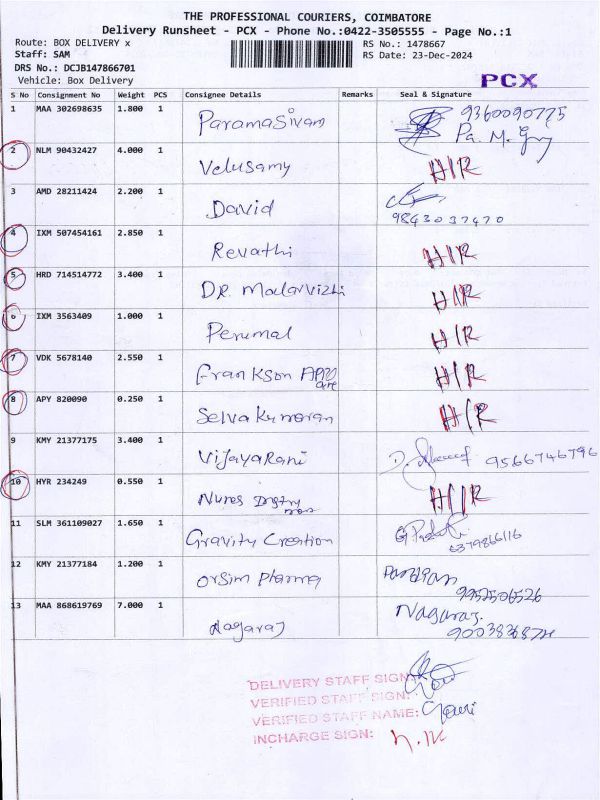 THE PROFESSIONAL COURIERS, COIMBATORE
Delivery Runsheet - PCX - Phone No.:0422-3505555 - Page No.:1
Route: BOX DELIVERY x RS No.: 1478667
Staff: SAM RS Date: 23-Dec-2024
DRS No.: DCJB147866701
Vehicle: Box Delivery PCX
S No Consignment No Weight PCS Consignee Details Remarks Seal & Signature
1 MAA 302698635 1.800 1 ParamaSivam 9360090775
Pa. M.
2 NLM 90432427 4.000 1 Velusamy H/R
3 AMD 28211424 2.200 1 David
9843037470
4 IXM 507454161 2.850 1 Revathi H/R
5 HRD 714514772 3.400 1 DR. Malarvizhi H/R
6 IXM 3563409 1.000 1 Perumal H/R
7 VDK 5678140 2.550 1 Frankson H/R
8 APY 820090 0.250 1 Selva Kumaran H/R
9 KMY 21377175 3.400 1 VijayaRani 9566746796
10 HYR 234249 0.550 1 H/R
11 SLM 361109027 1.650 1 Gravity Creation
6379866116
12 KMY 21377184 1.200 1 Orsim Pharma Pandian
9952506526
13 MAA 868619769 7.000 1 Nagaraj Nagaraj.
DELIVERY STAFF SIGN:
VERIFIED STAFF SIGN:
VERIFIED STAFF NAME: Gowri
INCHARGE SIGN: